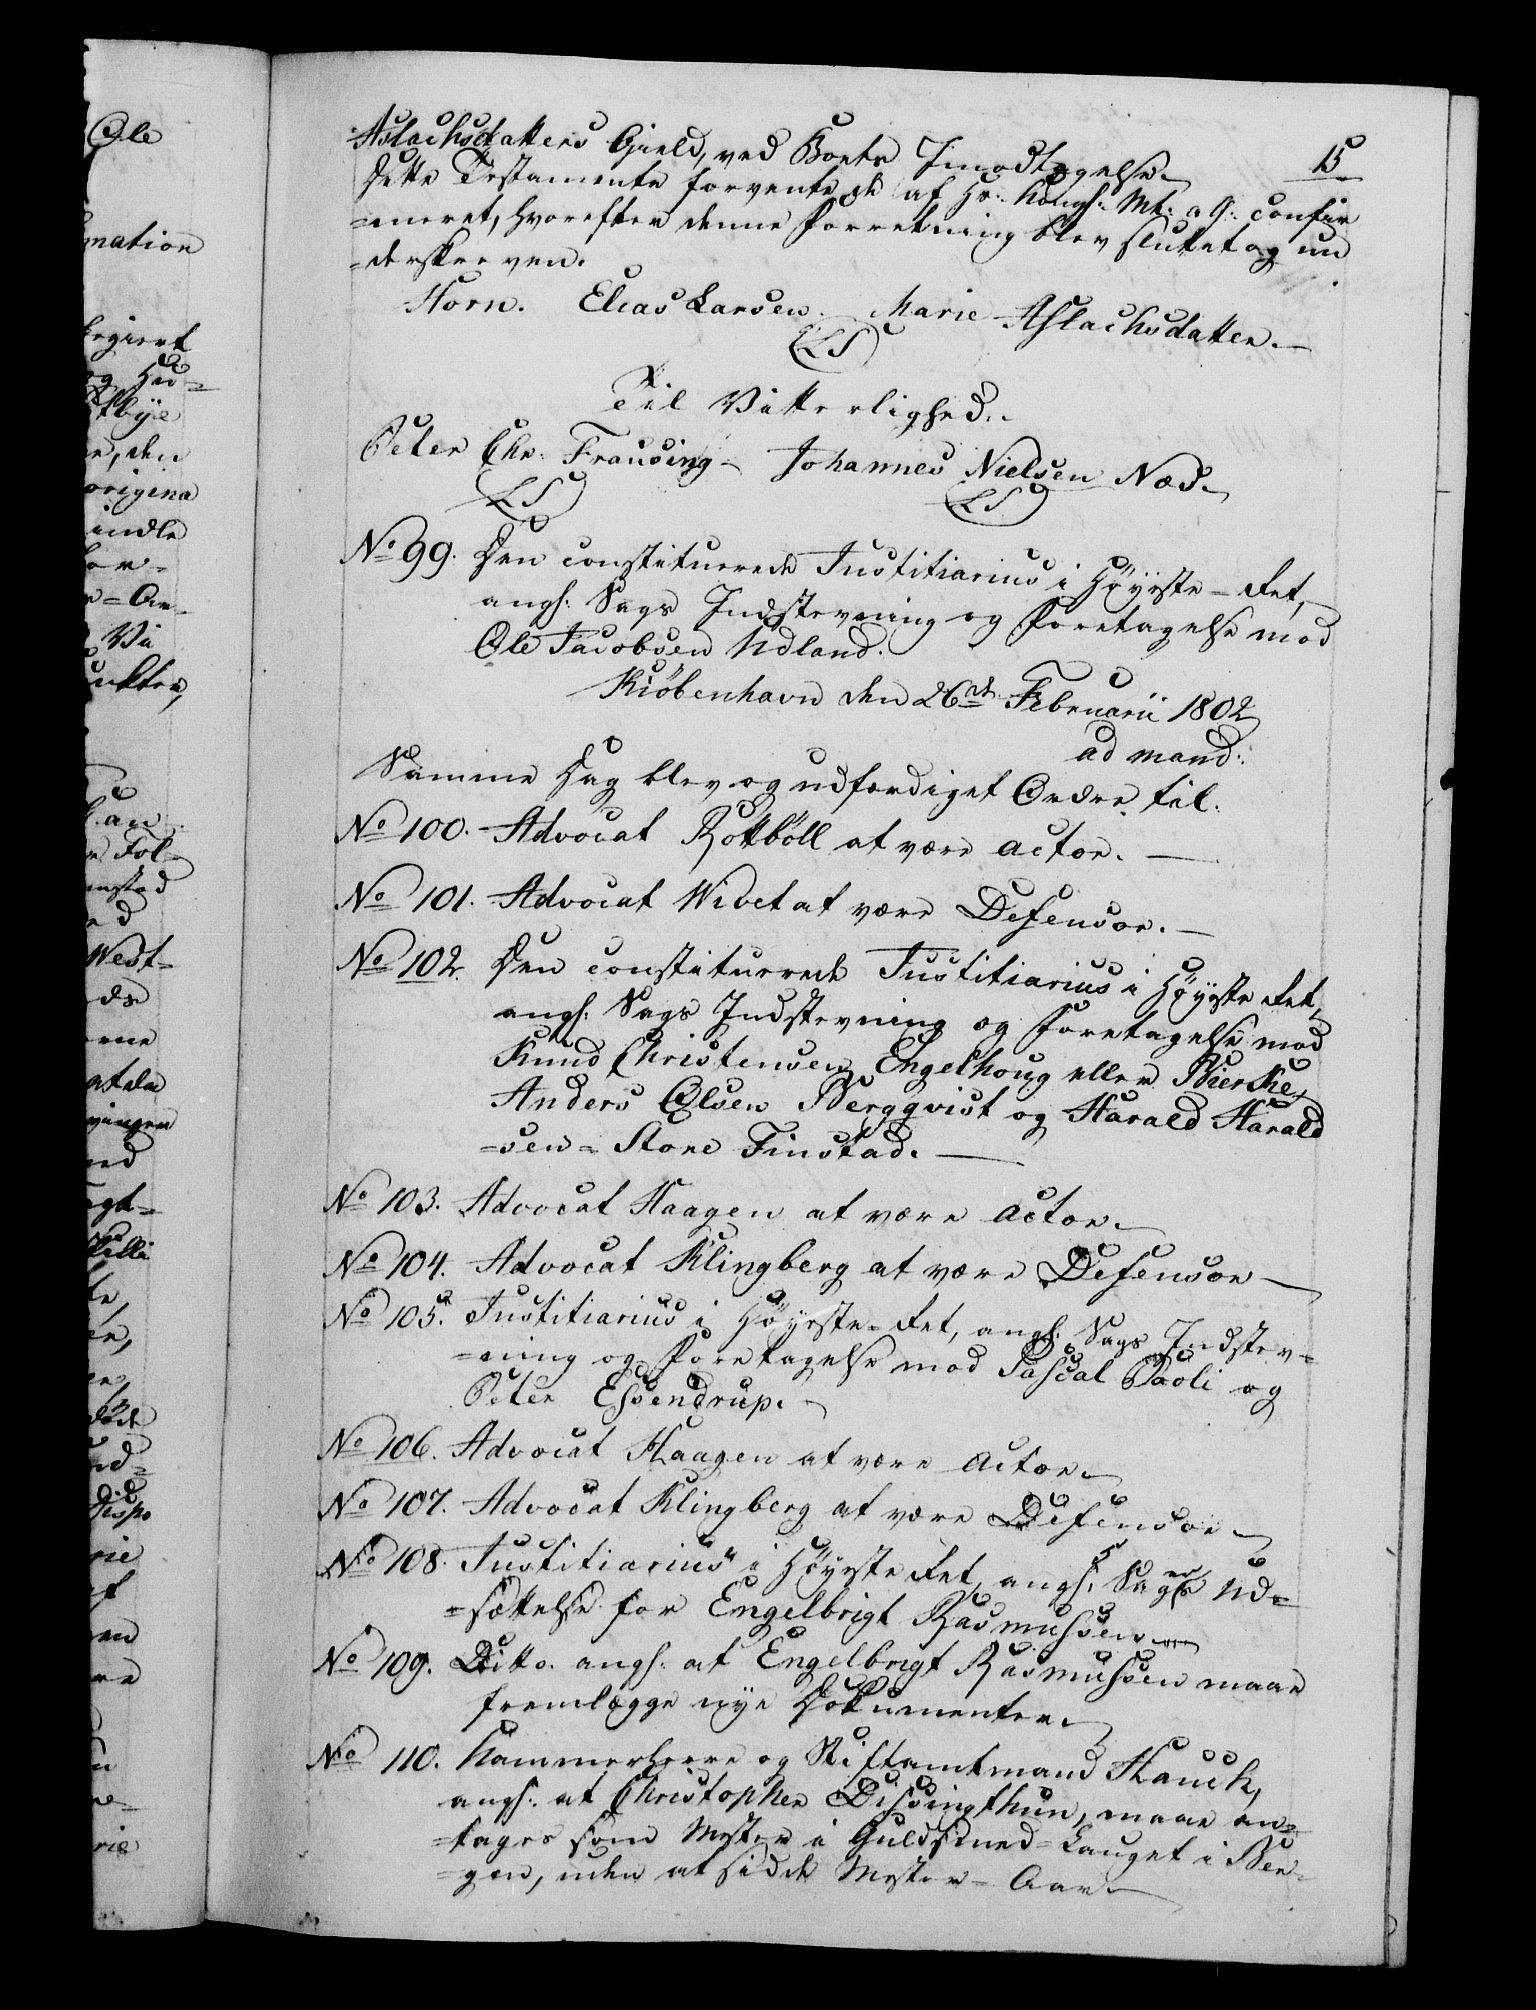 15
Aslachsdatters Gield, ved Boets Imodtagelse.
Dette Testamente forventede af Hs: Kongl: Mt: a g: confir
=meret, hvorefter denne Forretning blev sluttet og un
=derskreven.
Horn. Elias Larsen. Marie Aslachsdatter.
(LS)
Til Vitterlighed.
Peter Chr: Frausing Johannes Nielsen Næs.
(LS) (LS)
No 99. Den constituerede Justitiarius i Høyeste-Ret,
angl: Sags Indstevning og Foretagelse mod
Ole Jacobsen Udland.
Kiöbenhavn den 26de Februarii 1802
ad mand:
Samme Dag blev og udfærdiget Ordre til.
No 100. Advocat Rottböll at være Actor.
No 101. Advocat Wivet at være Defensor.
No 102. Den constituerede Justitiarius i Høyeste Ret,
angl: Sags Indstevning og Foretagelse mod
Knud Christensen Engelhoug eller Bierke,
Anders Olsen Bergqvist og Harald Harald
=sen= Store Finstad.
No 103. Advocat Haagen at være Actor.
No 104. Advocat Klingberg at være Defensor
No 105. Justitiarius i Høyeste-Ret, angl: Sags Indstev=
=ning og Foretagelse mod Pascal Paoli og
Peter Essendrup.
No 106. Advocat Haagen at være Actor.
No 107. Advocat Klingberg at være Defensor
No 108. Justitiarius i Høyeste Ret, angl: Sagers Ud=
=sættelse for Engelbrigt Rasmussen
No 109. Ditto. angl: at Engelbrigt Rasmussen maae
fremlægge nye Dokumenter.
No 110. Kammerherre og Stiftamtmand Hauch,
angl: at Christopher Dissingthun, maae an=
=tages som Mester i Guldsmed=Lauget i Ber=
=gen, uden at sidde Mester-Aar.